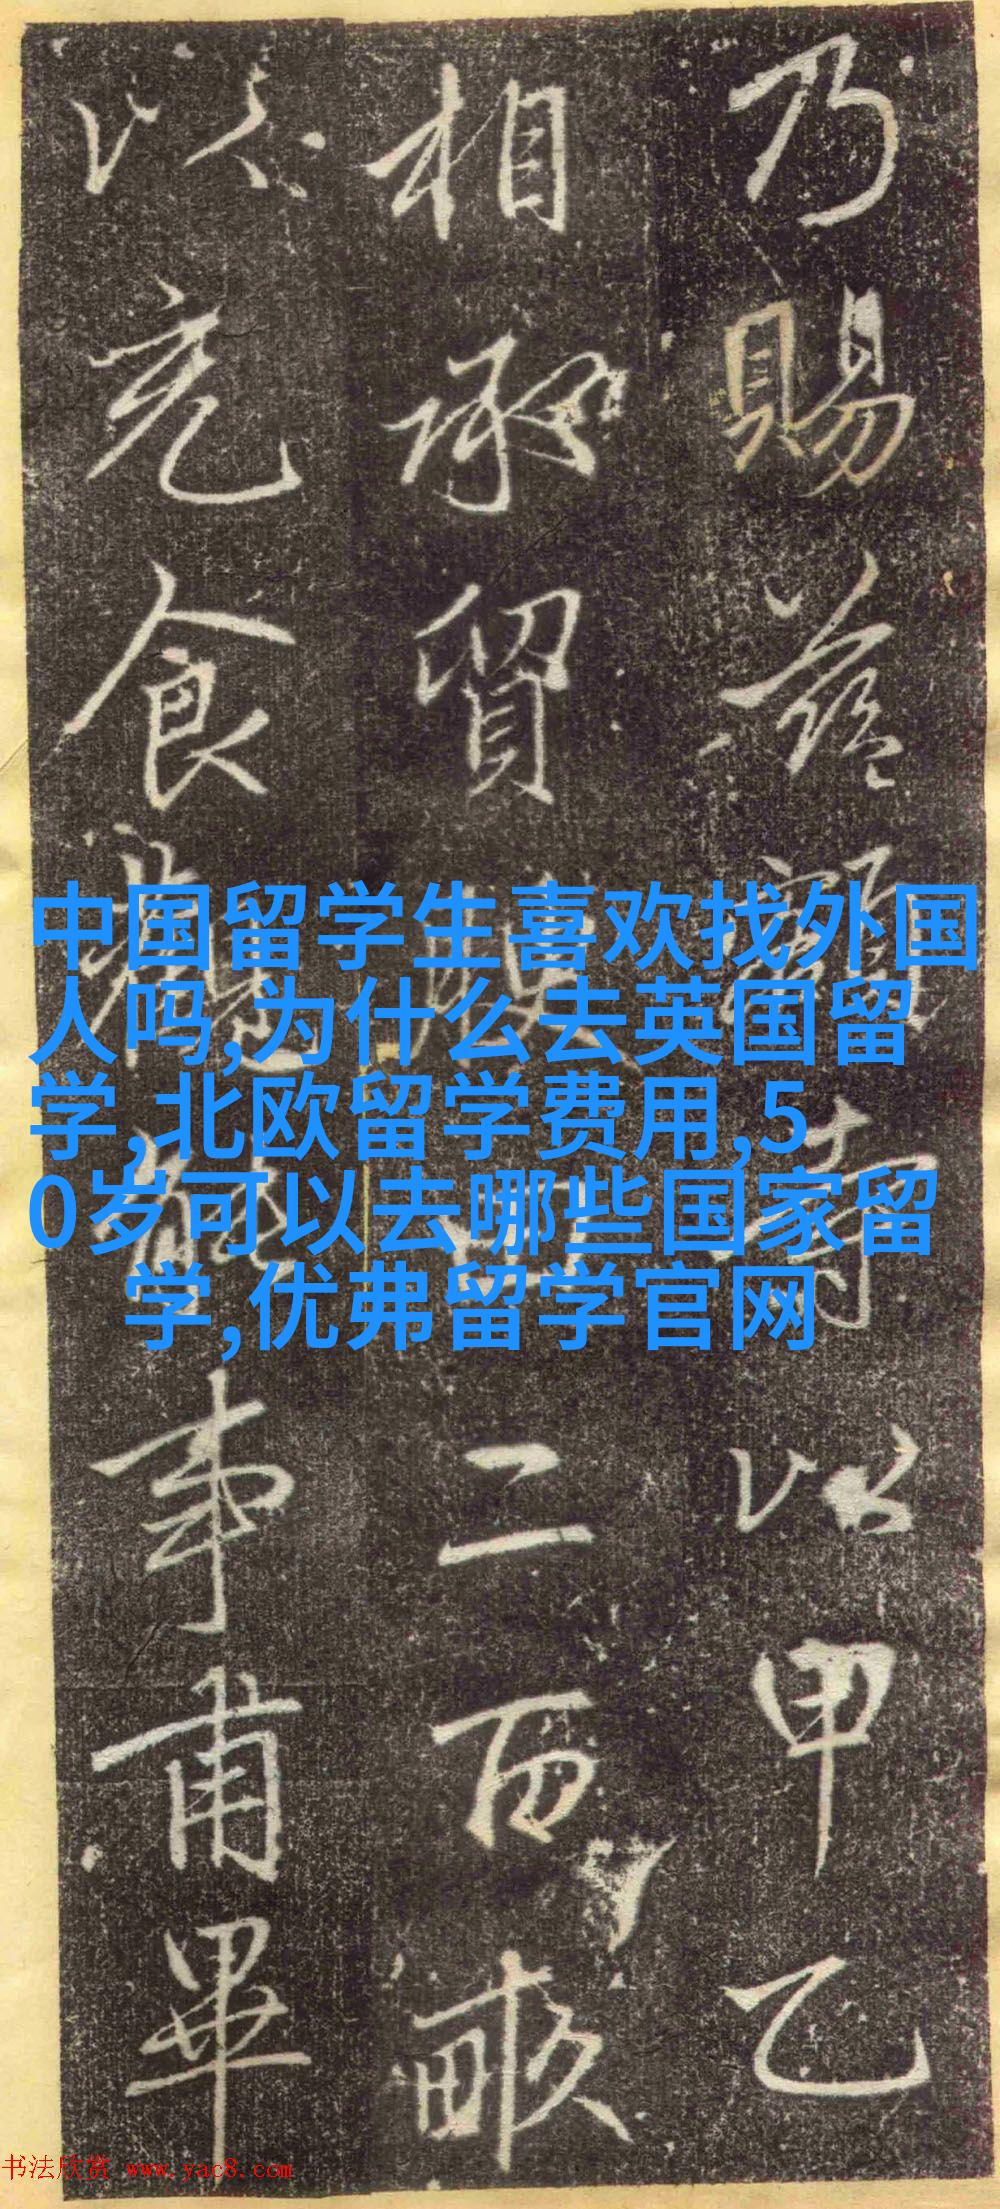 乃賜寺以甲乙
相承貿腴二百畝
以充食能事甫畢
中国留学生喜欢找外国
人吗,为什么去英国留
学,北欧留学费用,5
0岁可以去哪些国家留
学,优弗留学官网
书法欣赏 www.yac8.com